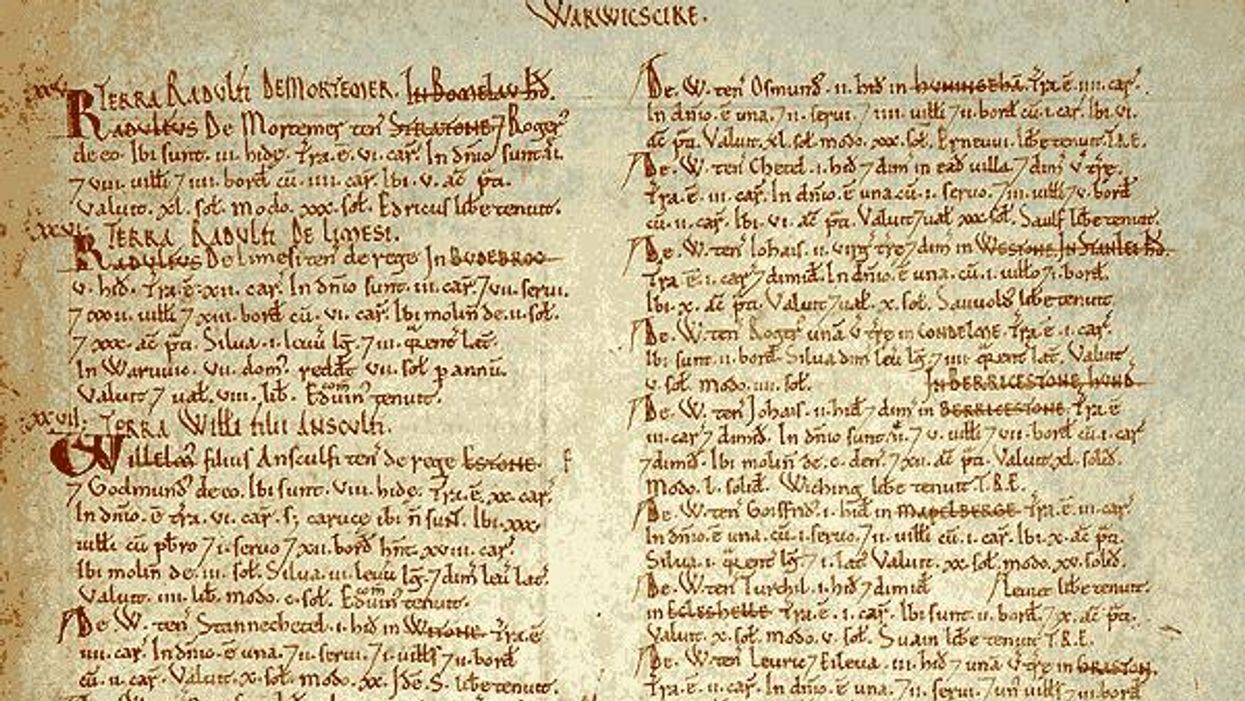 WARWICSCIRE.
XXV. TERRA RADULFI DE MORTEMER. In BOMELAU HD.
RADULFUS De Mortemer ten STRATONE, 7 Roger
de eo. Ibi sunt .iii. hide. Tra .e. vi. car. In dnio sunt .ii.
7 viii. uilli 7 iiii. bord cu .iiii. car. Ibi .v. ac pti.
Valuit .xl. sol. Modo .xxx. sol. Edricus libe tenuit.
XXVI. TERRA RADULFI DE LIMESI.
RADULFUS De limesi ten de rege In BUDEBROC
v. hid. Tra .e. xii. car. In dnio sunt .iii. car. 7 vii. serui.
7 xxxii. uilli 7 xiii. bord cu .vi. car. Ibi molin de .ii. sol.
7 xxx. ac pti. Silua .i. leuu lg. 7 iii. qrent lat.
In Waruuic .vii. dom reddt .vii. sol p annu.
Valuit 7 ual .viii. lib. Eduin com tenuit.
XXVII. TERRA Willi filii ANSCULFI.
Willelm filius Ansculfi ten de rege ESTONE.
7 Godmund de eo. Ibi sunt .viii. hide. Tra .e. xx. car.
In dnio .e. tra .vi. car. s; caruce ibi n sunt. Ibi .xxx.
uilli cu pbro 7 i. seruo 7 xii. bord hnt .xviii. car.
Ibi molin de .iii. sol. Silua .iii. leuu lg. 7 dim leu lat.
Valuit .iiii. lib. modo .c. sol. Eduin com tenuit.
De W. ten Stannechetel .i. hid in WITONE. Tra .e.
iiii. car. In dnio .e. una. 7 ii. serui. 7 i. uills 7 ii. bord
cu .ii. car. Valuit .x. sol. modo .xx. Ide .S. libe tenuit.
De .W. ten Osmund .ii. hid in HUNINGEHA. Tra .e. iiii. car.
In dnio .e. una. 7 ii. serui. 7 iiii. uilli 7 ii. bord cu .i. car. Ibi .vi.
ac pti. Valuit .xl. sol. modo .xxx. sol. Erneuui libe tenuit .T.R.E.
De .W. ten Chetel .i. hid 7 dim in ead uilla 7 dim v tre.
Tra .e. iii. car. In dnio .e. una cu .i. seruo. 7 iii. uilli 7 v. bord
cu .ii. car. Ibi .vi. ac pti. Valuit 7 ual .xxx. sol. Saulf libe tenuit.
De .W. ten Iohais .ii. uirg tre 7 dim in WESTONE. In Stanlei HD.
Tra .e. i. car 7 dimid. In dnio .e. una cu .i. uillo 7 i. bord.
Ibi .x. ac pti. Valuit 7 ual .x. sol. Sauuold libe tenuit.
De .W. ten Roger una v tre in CONDELME. Tra .e. i. car.
Ibi sunt .ii. bord. Silua dim leu lg. 7 iiii. qrent lat. Valuit
v. sol. modo .iiii. sol. In BERRICESTONE HUND.
De .W. ten Johais .ii. hid 7 dim in BERRICESTONE. Tra .e.
iii. car 7 dimid. In dnio sunt .ii. 7 v. uilli 7 vii. bord cu .ii. car
7 dimid. Ibi molin de .c. den. 7 xii. ac pti. Valuit .xl. solid.
Modo .l. solid. Wiching libe tenuit .T.R.E.
De .W. ten Goisfrid .i. hid in MAPELBERGE. Tra .e. iii. car
In dnio .e. una cu .i. seruo. 7 ii. uilli cu .i. car. Ibi .x. ac pti.
Silua .i. qrent lg. 7 i. lat. Valuit .xx. sol. modo .xv. solid.
De .W. ten Turchil .i. hid 7 dimid Leuric libe tenuit.
in ECLESHELLE. Tra .e. i. car. Ibi sunt .ii. bord. 7 x. ac pti.
Valuit .x. sol. modo .v. sol. Suain libe tenuit T.R.E.
De .W. ten Leuric 7 Eileua .iii. hid 7 una v tre in
Tra .e. ii. car. In dnio .e. una. 7 ii. serui. 7 un uills 7 iii. bord